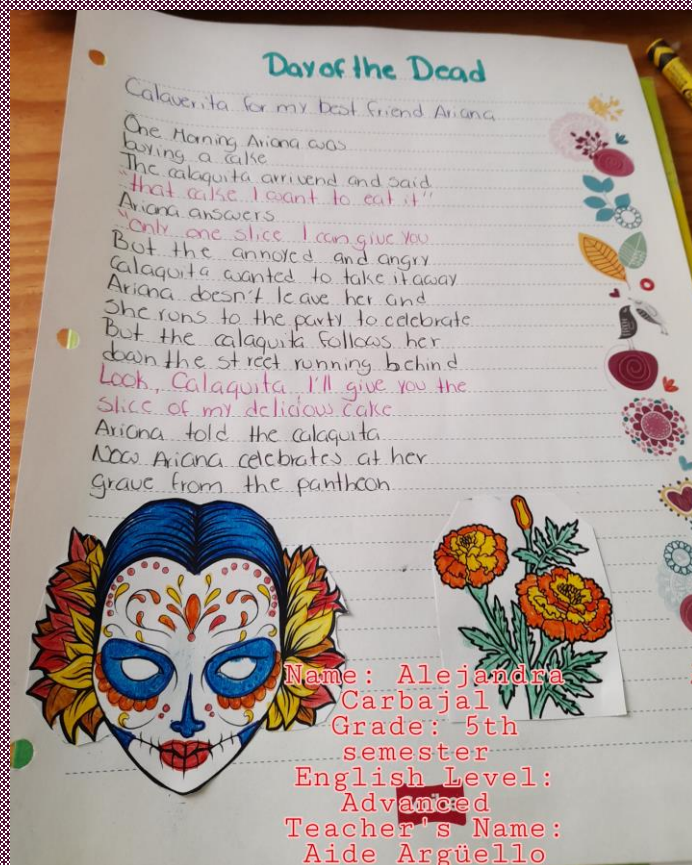 Day of the Dead
Calaverita for my best friend Ariana
One Morning Ariana was
buying a calke
The calaquita arrivend and said
"that calke I want to eat it"
Ariana answers
"Only one slice I can give you
But the annoyed and angry
calaquita wanted to take it away
Ariana doesn't leave her and
she runs to the party to celebrate
But the calaquita follows her
down the street running behind
Look, Calaquita I'll give you the
slice of my delicious cake
Ariana told the calaquita
Now Ariana celebrates at her
grave from the pantheon
Name: Alejandra
Carbajal
Grade: 5th
semester
English Level:
Advanced
Teacher's Name:
Aide Argüello